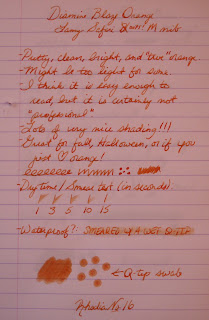 Diamine Blaze Orange
Lamy Safari M nib
-Pretty, clean, bright, and "true" orange.
-Might be too light for some.
-I think it is easy enough to
read, but it is certainly not
"professional"
-Lots of very nice shading!!!
-Great for fall, Halloween, or if you
just ♡ orange!
-Dry Time/Smear test (in seconds):
1 3 5 10 15
-Waterproof?: SMEARED W/ A WET Q-TIP
← Q-tip swab